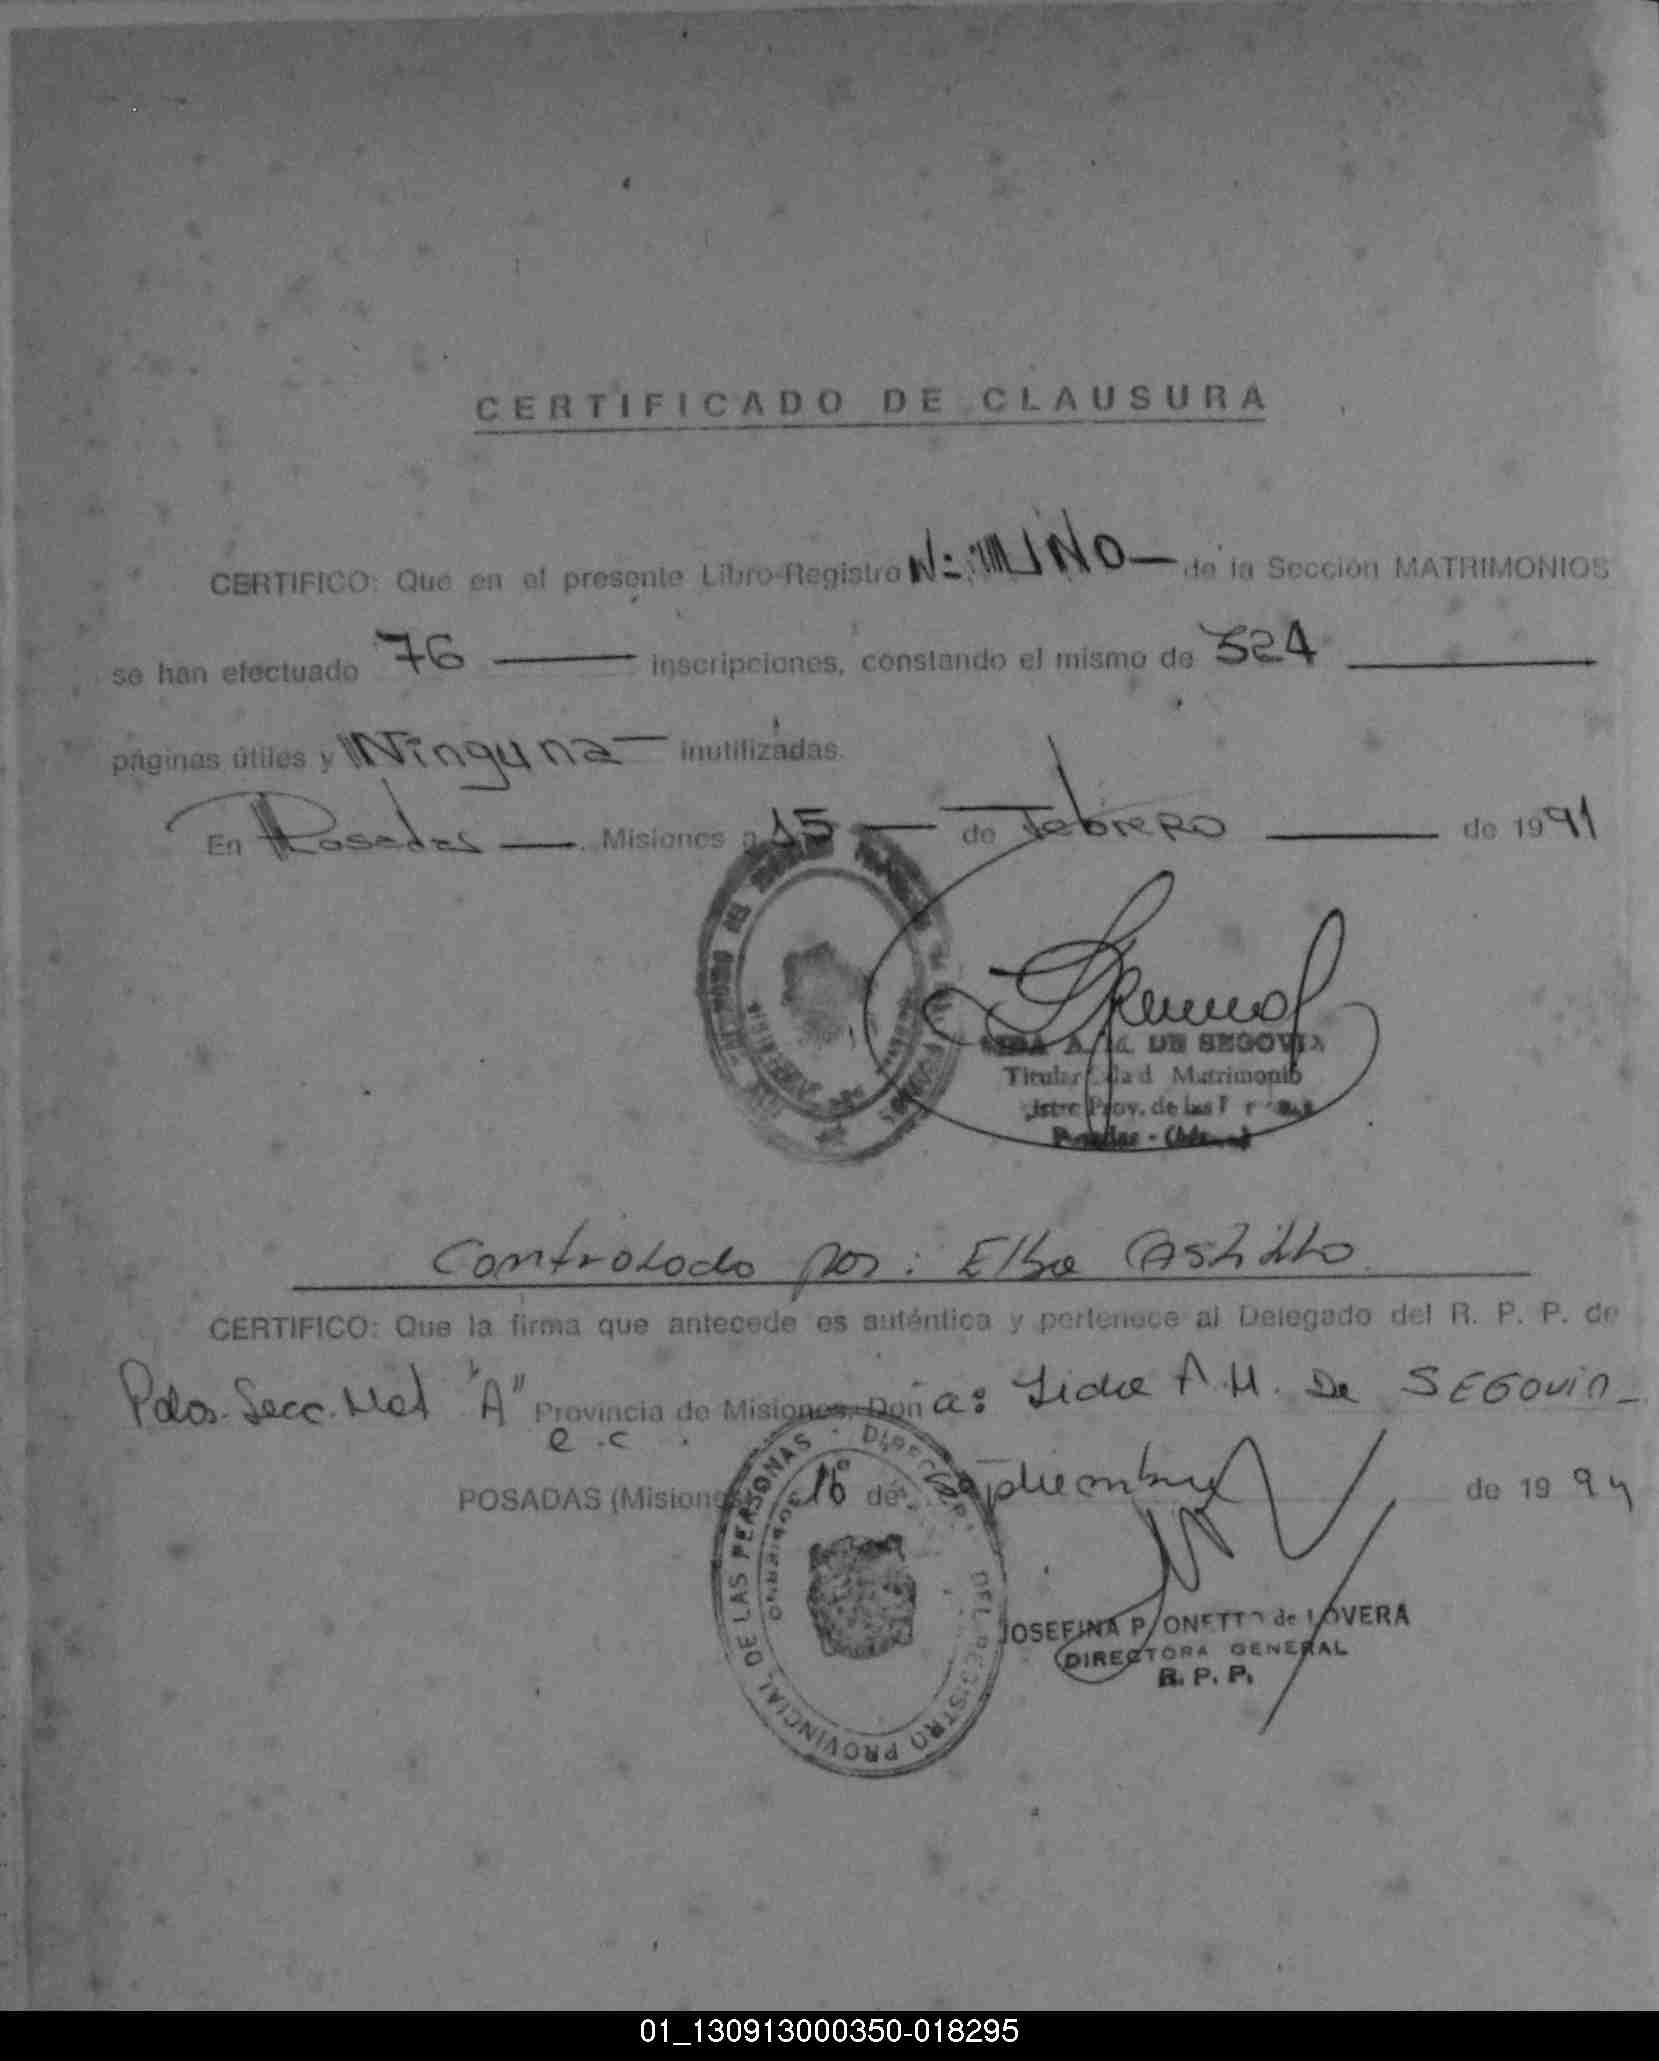 CERTIFICADO DE CLAUSURA
CERTIFICO: Que en el presente Libro-Registro Nº UNO — de la Sección MATRIMONIOS
se han efectuado 76 — inscripciones, constando el mismo de 324 —
páginas útiles y Ninguna — inutilizadas.
En Posadas —. Misiones a 15 — de Febrero — de 1991
A. M. DE SEGOVIA
Titular Matrimonio
Prov. de las
Posadas -
Controlado por: Elba Castillo
CERTIFICO: Que la firma que antecede es auténtica y pertenece al Delegado del R. P. P. de
Pdas. Secc. Mat "A" Provincia de Misiones, Don a: Lidia A. M. De SEGOVIA -
e.c.
POSADAS (Misiones) 16 de septiembre de 1994
DIRECCION DEL REGISTRO PROVINCIAL DE LAS PERSONAS
GOBIERNO
JOSEFINA P. ONETTO de LOVERA
DIRECTORA GENERAL
R. P. P.
01_130913000350-018295